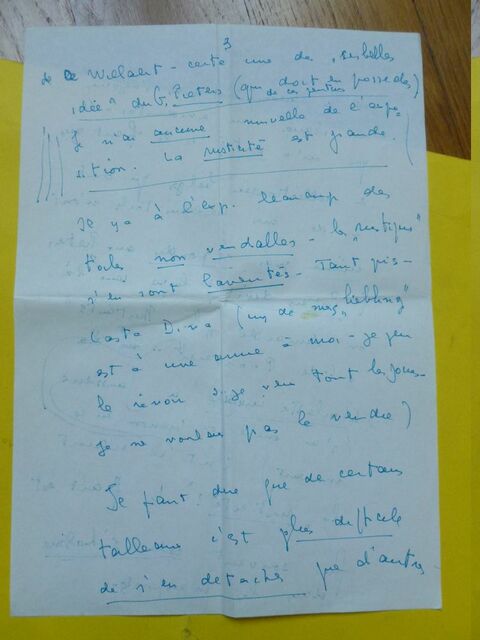 3
de ce Willaert - certe une de "ses belles
idée" du G. Pieters (que doit en posseder
de ces peintures
Je n'ai aucune nouvelle de l'expo-
sition. La rusticité est grande.
Il y a à l'exp. beaucoup des
toiles non vendables - les "rustiques"
j'en sont - Tant pis -
Casta Diva (un de mes "liebling"
est à une amie à moi - je peu
le revoir si je veu tout les jours -
je ne voulais pas le vendre)
Je faut dire que de certains
tableaux c'est plus difficile
de s'en detacher que d'autres -